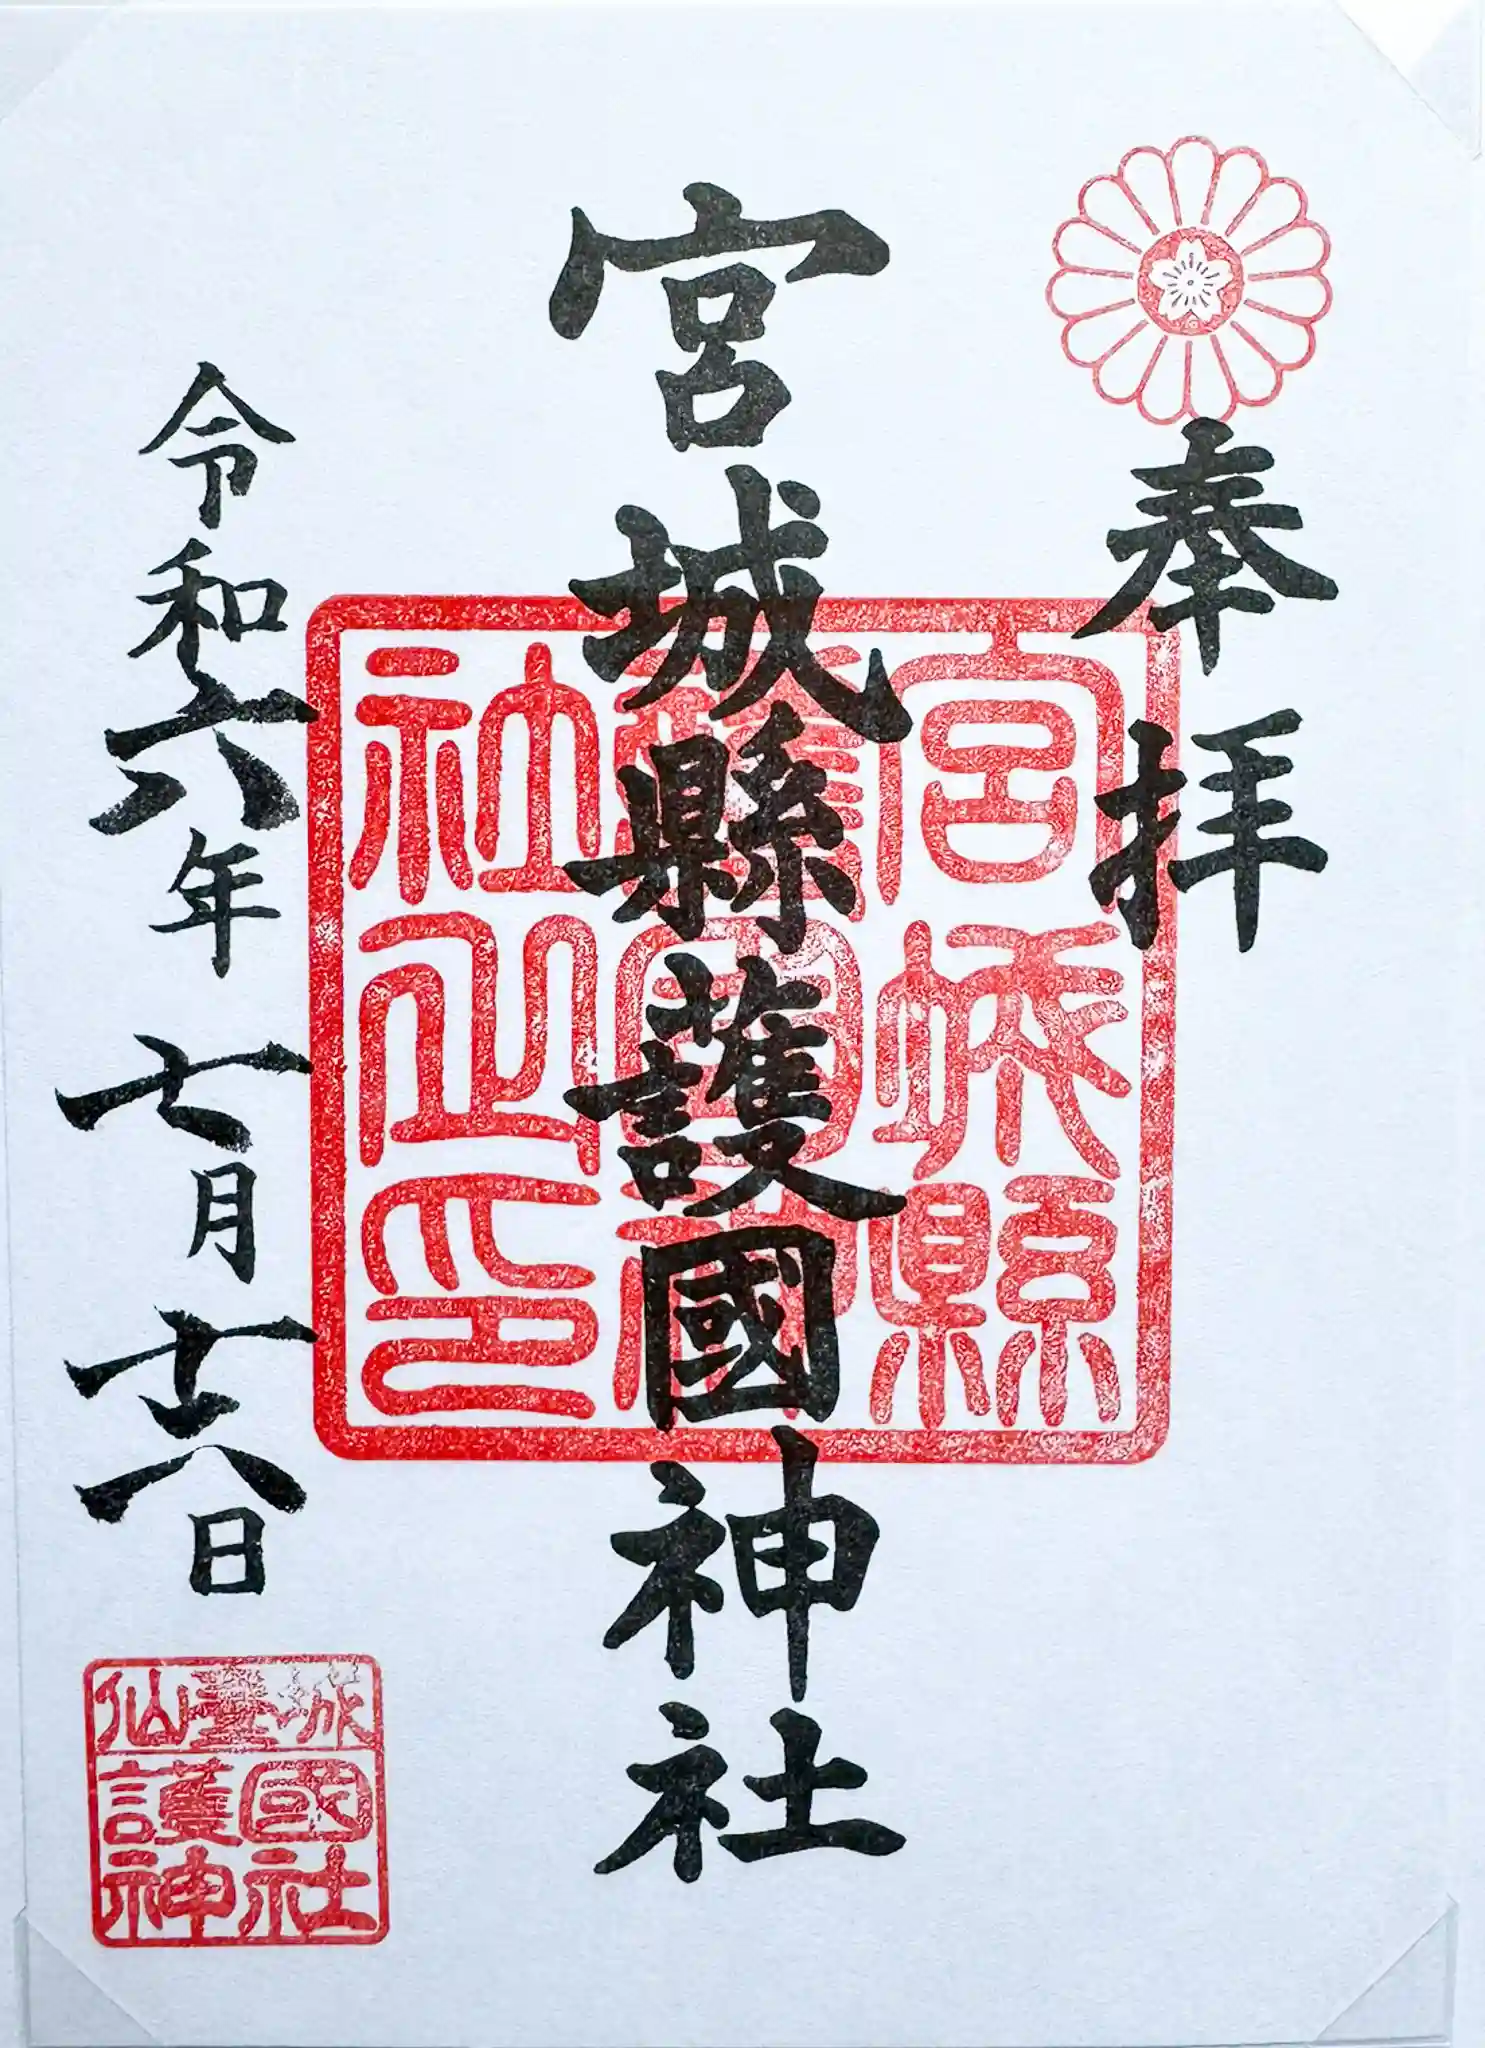 奉拝
宮城縣護國神社
宮城縣
護國神
社之印
令和六年七月廿八日
仙臺城
護國
神社